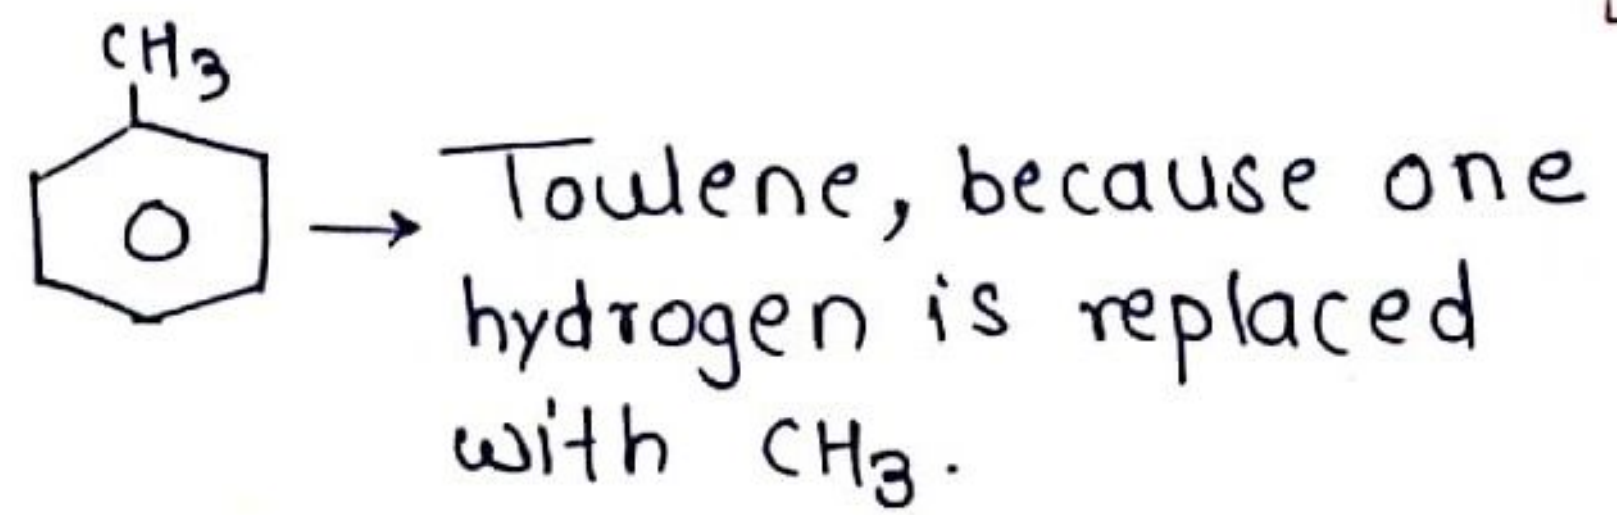 CH3
Toulene, because one
hydrogen is replaced
with CH3.